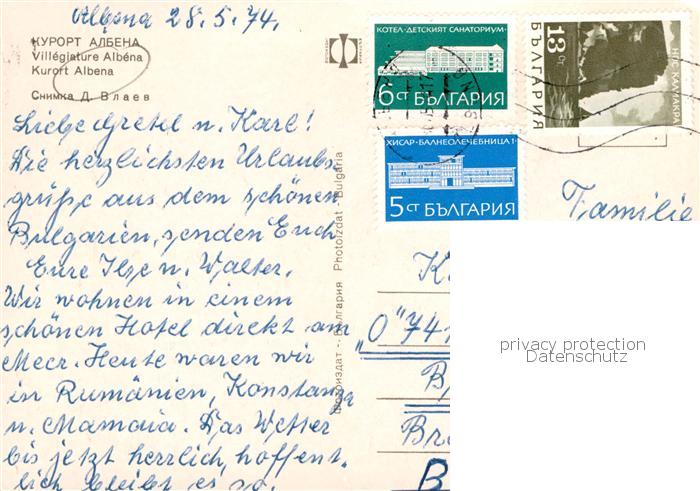 Albena 28.5.74.
КУРОРТ АЛБЕНА
Villégiature Albéna
Kurort Albena
Снимка Д. Влаев
Liebe Gretel u. Karl!
Die herzlichsten Urlaubs-
grüße aus dem schönen
Bulgarien, senden Euch
Eure Ilse u. Walter.
Wir wohnen in einem
schönen Hotel direkt am
Meer. Heute waren wir
in Rumänien, Konstanza
u. Mamaia. Das Wetter
bis jetzt herrlich, hoffent-
lich bleibt es so.
Фотоиздат - България Photoizdat - Bulgaria
КОТЕЛ-ДЕТСКИЯТ САНАТОРИУМ
6 СТ БЪЛГАРИЯ
13 СТ
БЪЛГАРИЯ
НОС КАЛИАКРА
ХИСАР-БАЛНЕОЛЕЧЕБНИЦА 1
5 СТ БЪЛГАРИЯ
Familie
K
"O" 741
B
Br
B
privacy protection
Datenschutz